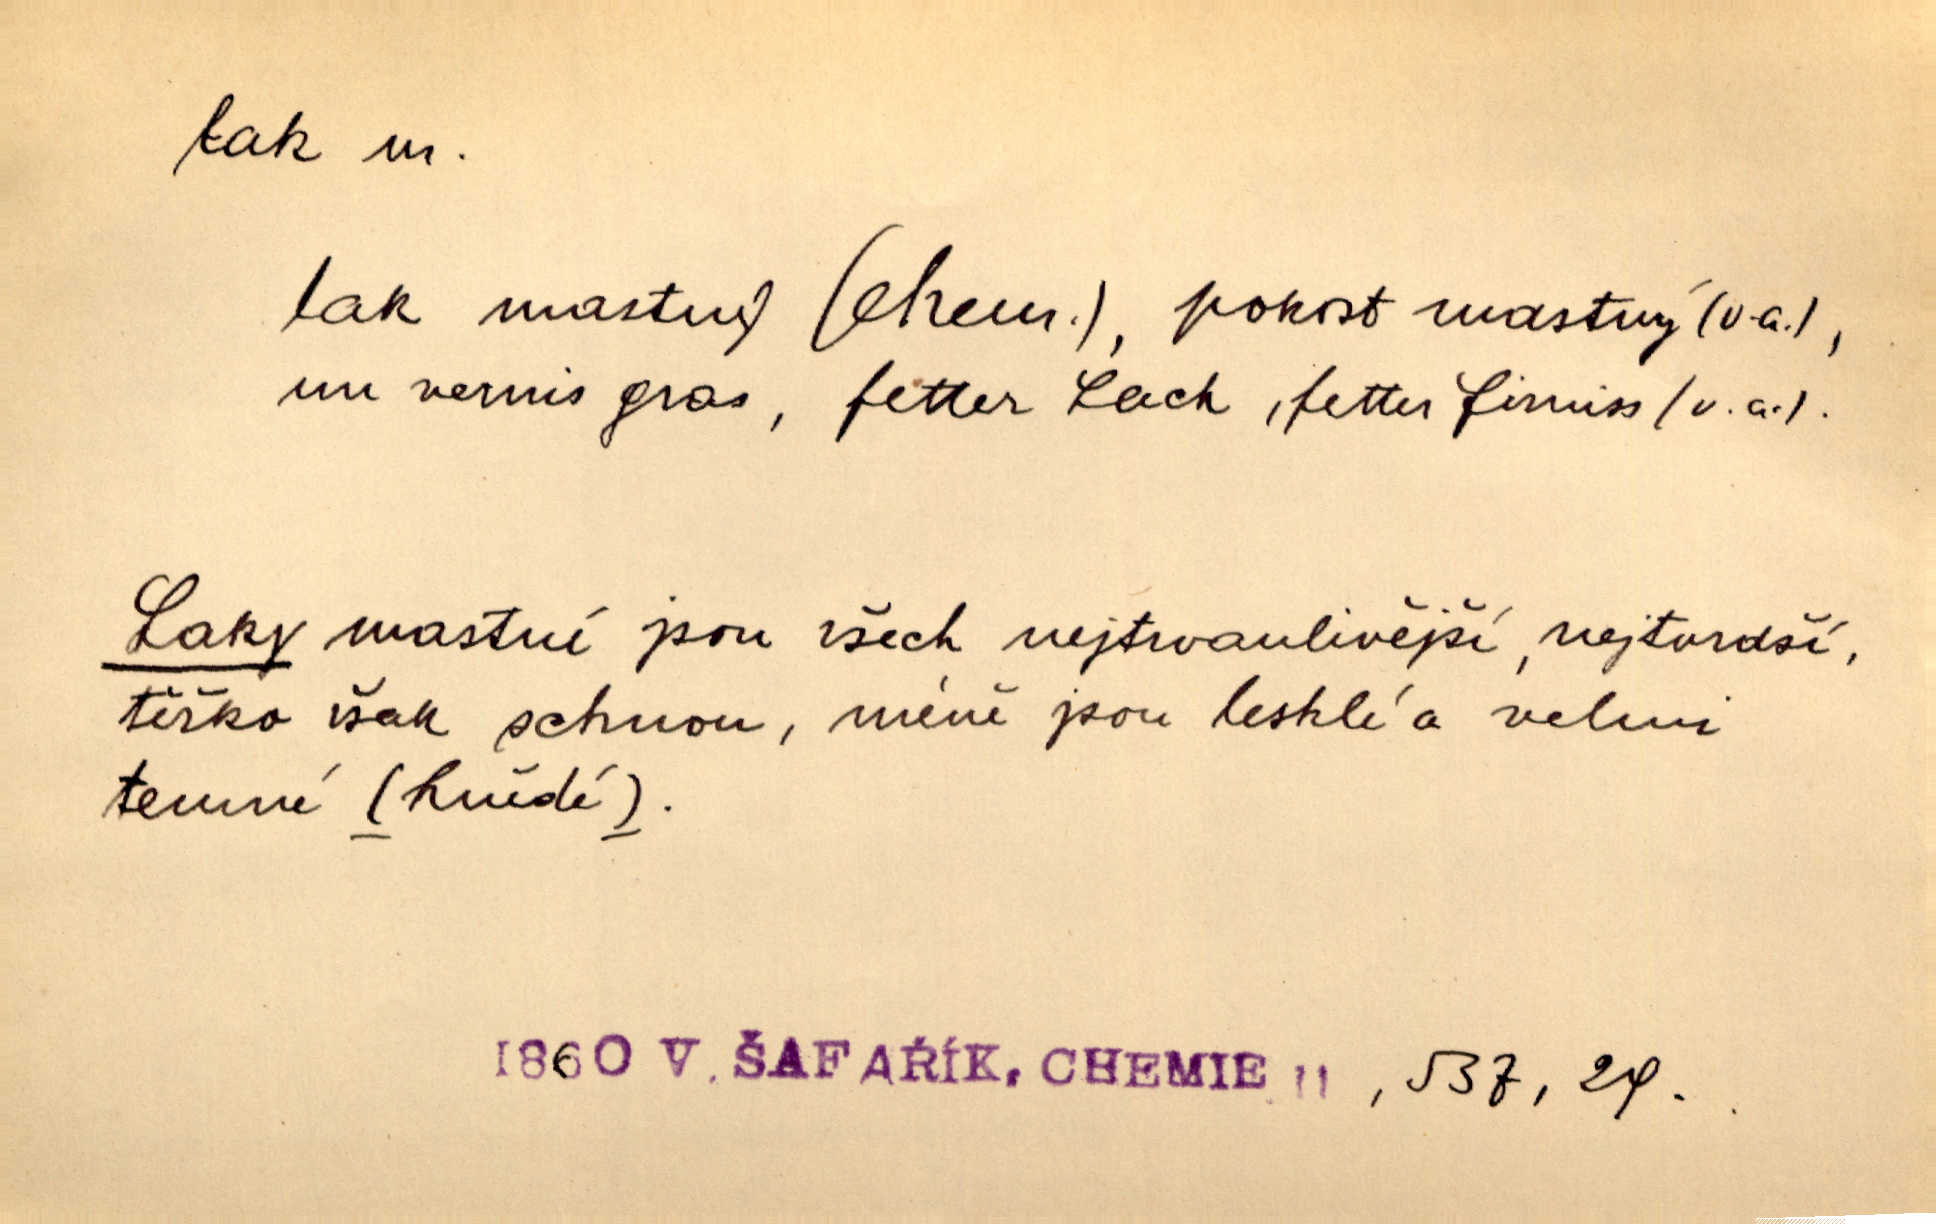 lak m.
lak mastný (chem.), pokost mastný (v.a.),
un vernis gras, fetter Lack, fetter Firniss (v.a.).
Laky mastné jsou všech nejtrvanlivější, nejtvrdší,
těžko však schnou, méně jsou lesklé a velmi
temné (hnědé).
1860 V. ŠAFAŘÍK, CHEMIE II, 537, 24.